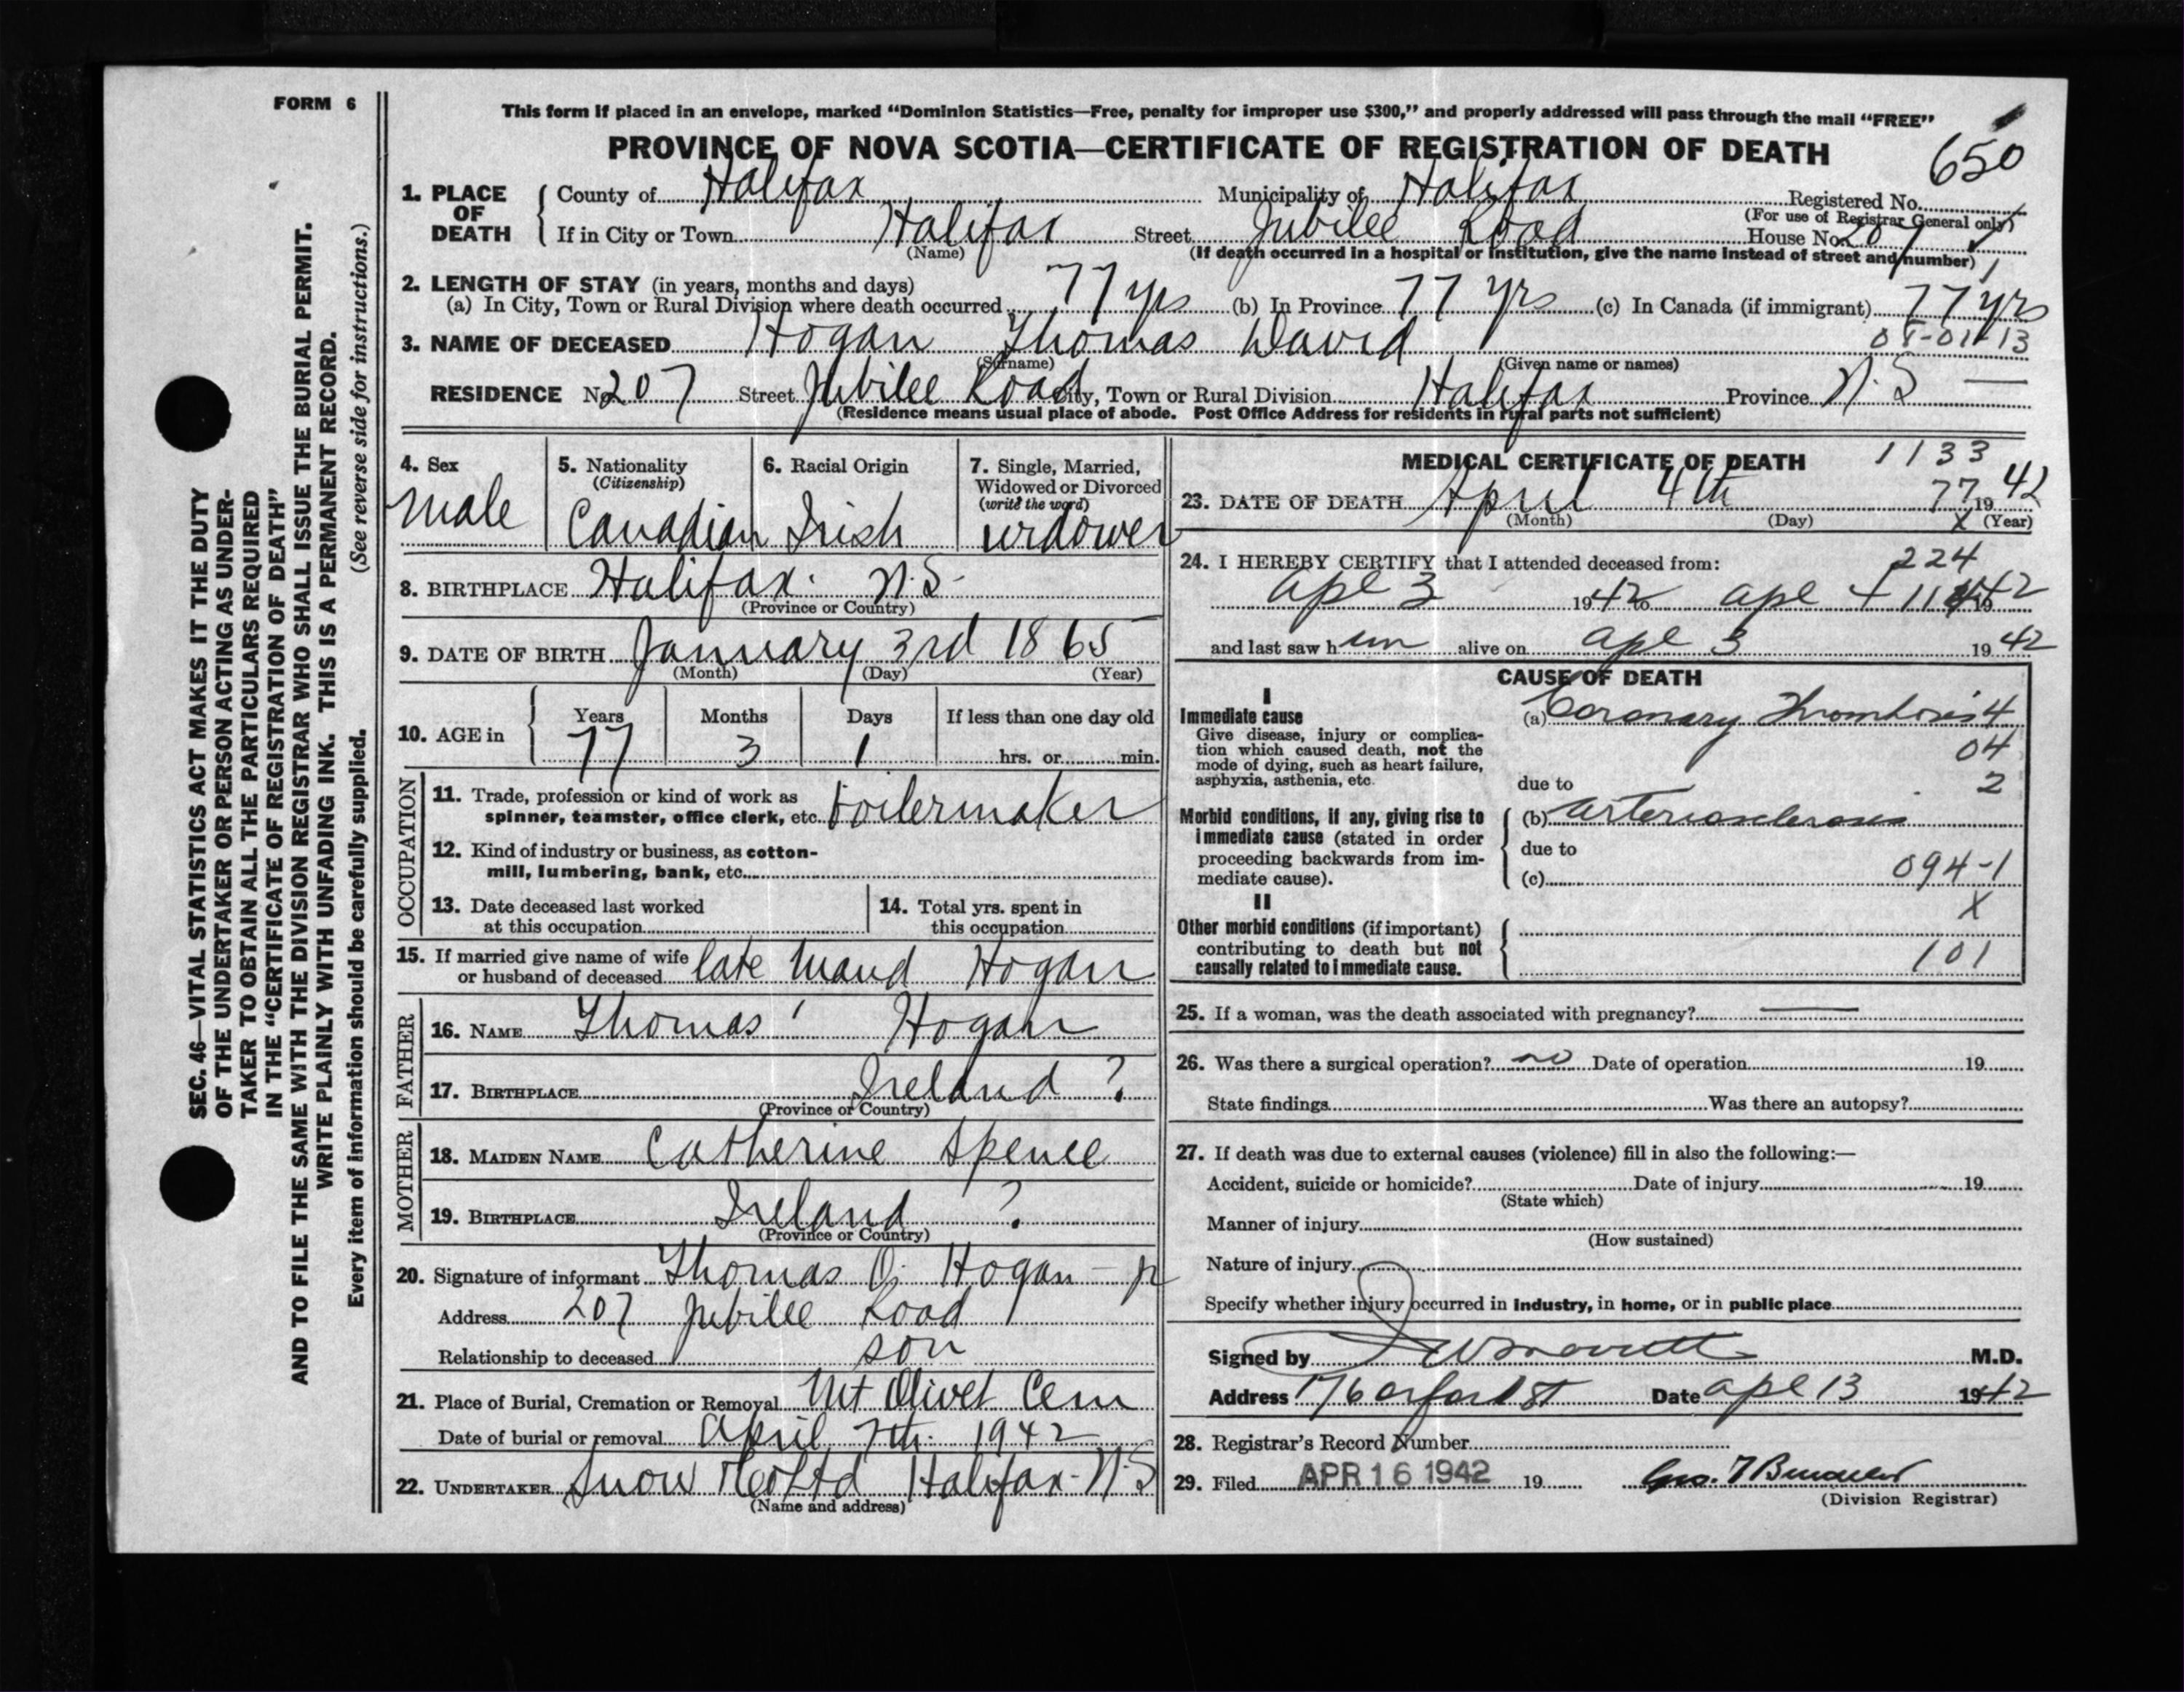 FORM 6
This form if placed in an envelope, marked “Dominion Statistics—Free, penalty for improper use $300,” and properly addressed will pass through the mail “FREE”
PROVINCE OF NOVA SCOTIA—CERTIFICATE OF REGISTRATION OF DEATH
650
1. PLACE OF DEATH
County of Halifax Municipality of Halifax Registered No.
(For use of Registrar General only)
If in City or Town Halifax Street Jubilee Road House No. 207
(Name) (If death occurred in a hospital or institution, give the name instead of street and number)
2. LENGTH OF STAY (in years, months and days)
(a) In City, Town or Rural Division where death occurred 77 yrs (b) In Province 77 yrs (c) In Canada (if immigrant) 77 yrs
3. NAME OF DECEASED Hogan Thomas David
(Surname) (Given name or names)
RESIDENCE No 207 Street Jubilee Road City, Town or Rural Division Halifax Province N.S
(Residence means usual place of abode. Post Office Address for residents in rural parts not sufficient)
4. Sex
male
5. Nationality
(Citizenship)
Canadian
6. Racial Origin
Irish
7. Single, Married,
Widowed or Divorced
(write the word)
widower
8. BIRTHPLACE Halifax. N.S.
(Province or Country)
9. DATE OF BIRTH January 3rd 1865
(Month) (Day) (Year)
10. AGE in
Years Months Days If less than one day old
77 3 1 hrs. or min.
OCCUPATION
11. Trade, profession or kind of work as
spinner, teamster, office clerk, etc. boilermaker
12. Kind of industry or business, as cotton-
mill, lumbering, bank, etc.
13. Date deceased last worked
at this occupation
14. Total yrs. spent in
this occupation
15. If married give name of wife
or husband of deceased late Maud Hogan
FATHER
16. NAME Thomas Hogan
17. BIRTHPLACE Ireland ?
(Province or Country)
MOTHER
18. MAIDEN NAME Catherine Spence
19. BIRTHPLACE Ireland ?
(Province or Country)
20. Signature of informant Thomas D. Hogan - jr
Address 207 Jubilee Road
Relationship to deceased son
21. Place of Burial, Cremation or Removal Mt Olivet Cem
Date of burial or removal April 7th. 1942
22. UNDERTAKER Snow & Co Ltd Halifax - N.S
(Name and address)
MEDICAL CERTIFICATE OF DEATH
1133
77
23. DATE OF DEATH April 4th 19 42
(Month) (Day) X (Year)
24. I HEREBY CERTIFY that I attended deceased from:
224
apl 3 1942 to apl 4 1942
and last saw him alive on apl 3 1942
CAUSE OF DEATH
I
Immediate cause
Give disease, injury or complica-
tion which caused death, not the
mode of dying, such as heart failure,
asphyxia, asthenia, etc.
(a) Coronary Thrombosis 4
04
due to 2
Morbid conditions, if any, giving rise to
immediate cause (stated in order
proceeding backwards from im-
mediate cause).
(b) arteriosclerosis
due to
(c) 094-1
X
II
Other morbid conditions (if important)
contributing to death but not
causally related to immediate cause.
101
25. If a woman, was the death associated with pregnancy?
26. Was there a surgical operation? no Date of operation 19
State findings Was there an autopsy?
27. If death was due to external causes (violence) fill in also the following:—
Accident, suicide or homicide? Date of injury 19
(State which)
Manner of injury
(How sustained)
Nature of injury
Specify whether injury occurred in industry, in home, or in public place
Signed by M.D.
Address 176 Oxford St Date apl 13 1942
28. Registrar's Record Number
29. Filed APR 16 1942 19
(Division Registrar)
SEC. 46—VITAL STATISTICS ACT MAKES IT THE DUTY
OF THE UNDERTAKER OR PERSON ACTING AS UNDER-
TAKER TO OBTAIN ALL THE PARTICULARS REQUIRED
IN THE “CERTIFICATE OF REGISTRATION OF DEATH”
AND TO FILE THE SAME WITH THE DIVISION REGISTRAR WHO SHALL ISSUE THE BURIAL PERMIT.
WRITE PLAINLY WITH UNFADING INK. THIS IS A PERMANENT RECORD.
Every item of information should be carefully supplied. (See reverse side for instructions.)